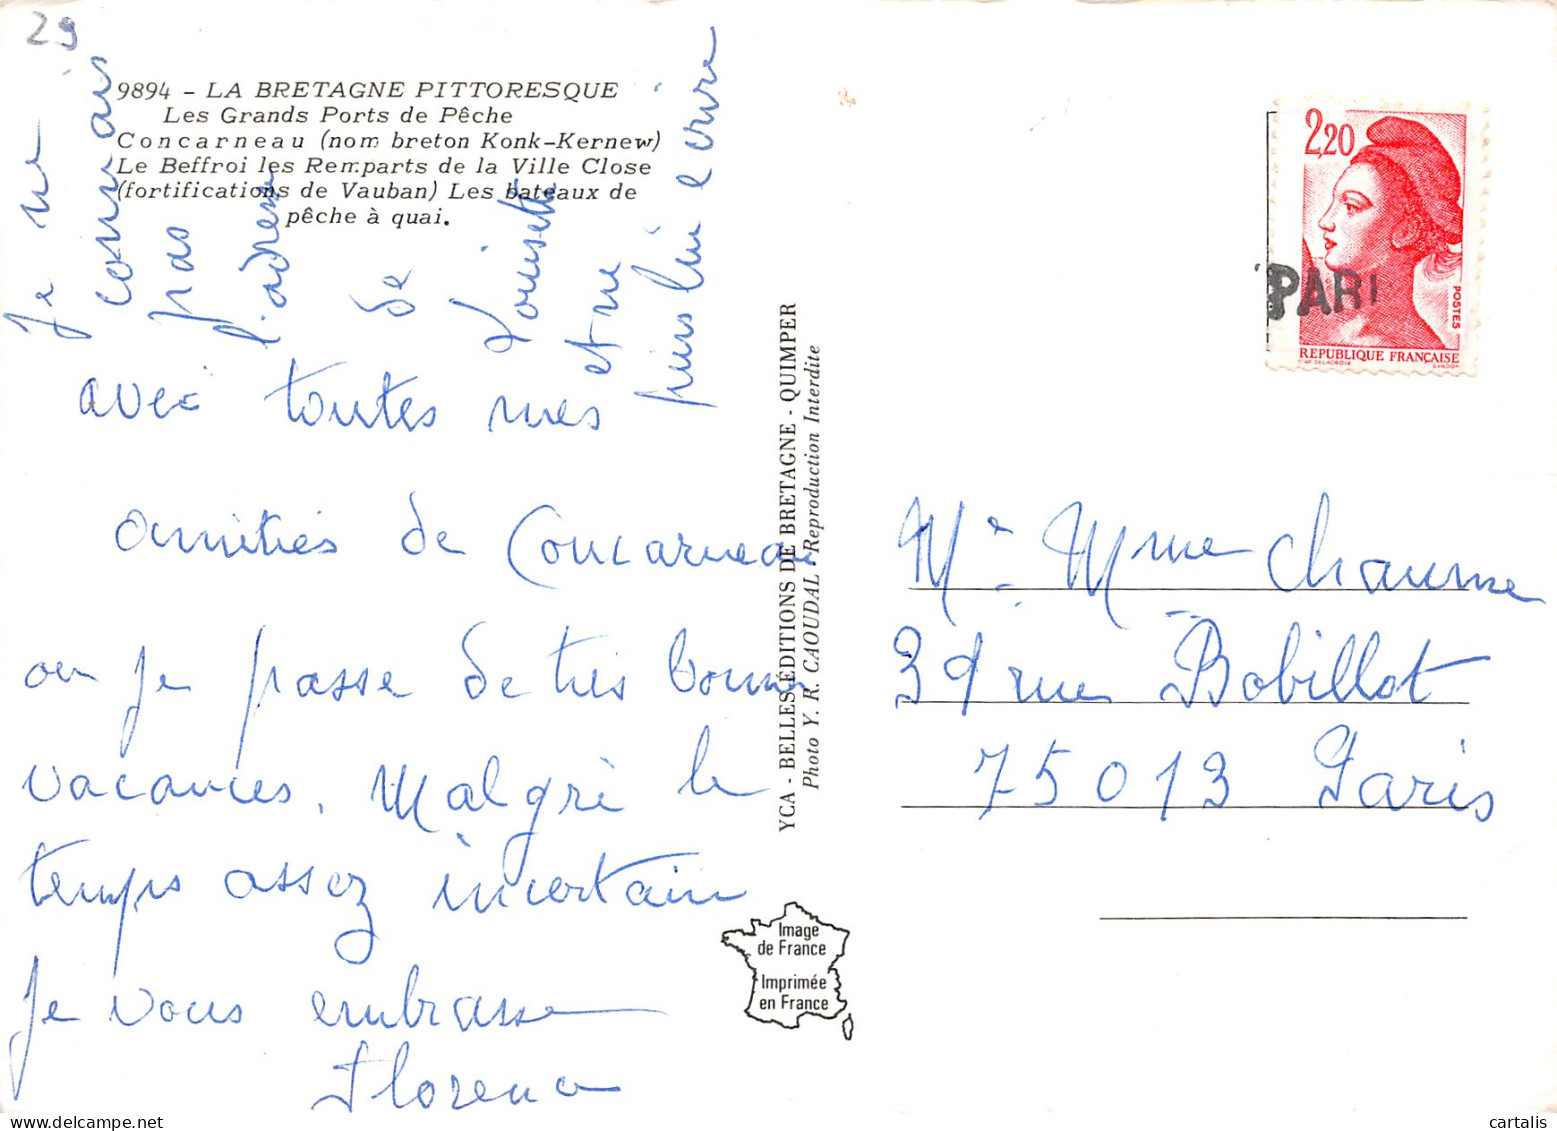 29
9894 - LA BRETAGNE PITTORESQUE
Les Grands Ports de Pêche
Concarneau (nom breton Konk-Kernew)
Le Beffroi les Remparts de la Ville Close
(fortifications de Vauban) Les bateaux de
pêche à quai.
Je ne
connais
pas
l'adresse
de
Louisette
et ne
puis lui ecrire
avec toutes mes
amitiés de Concarneau
ou je passe de très bonnes
vacances. Malgré le
temps assez incertain
Je vous embrasse
Florence
YCA - BELLES ÉDITIONS DE BRETAGNE - QUIMPER
Photo Y. R. CAOUDAL - Reproduction Interdite
Image
de France
Imprimée
en France
2,20
POSTES
REPUBLIQUE FRANÇAISE
D'AP. DELACROIX GANDON
PARI
Mr Mme Chaume
39 rue Bobillot
75013 Paris
cartalis